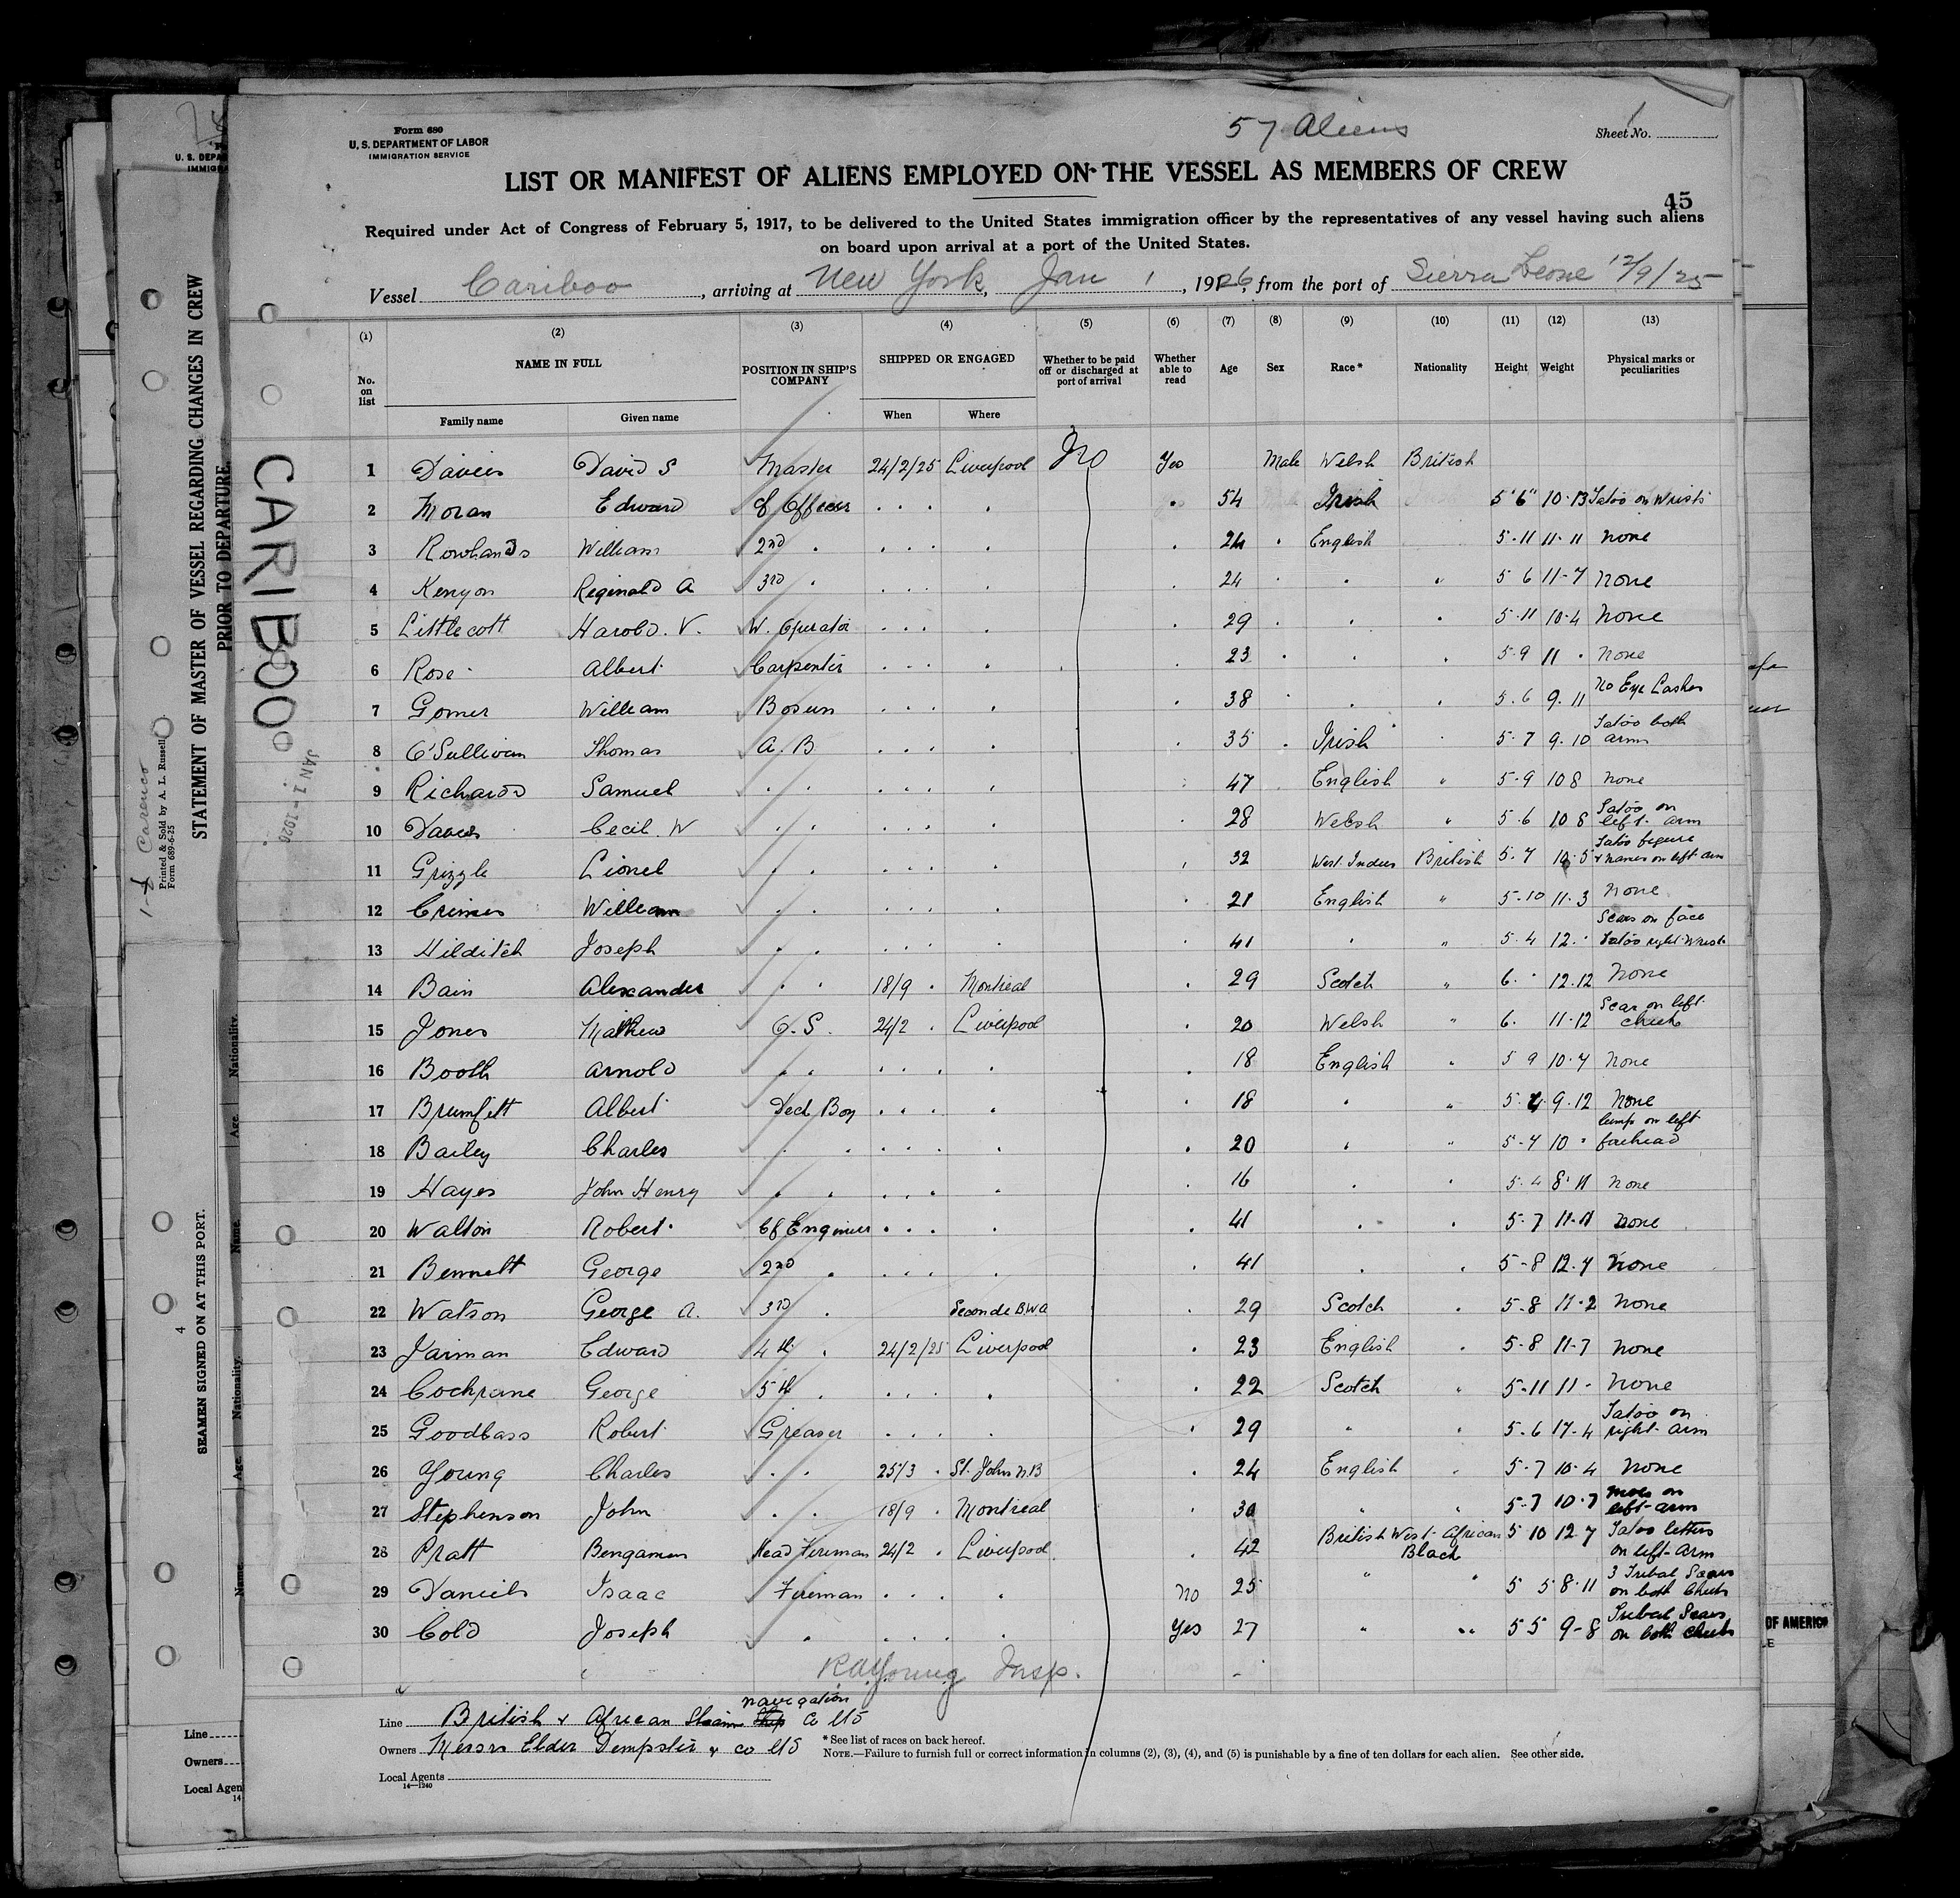 57 Aliens
Form 680
U. S. DEPARTMENT OF LABOR
IMMIGRATION SERVICE
Sheet No. 1
LIST OR MANIFEST OF ALIENS EMPLOYED ON THE VESSEL AS MEMBERS OF CREW
45
Required under Act of Congress of February 5, 1917, to be delivered to the United States immigration officer by the representatives of any vessel having such aliens
on board upon arrival at a port of the United States.
Vessel Cariboo, arriving at New York, Jan 1, 1926, from the port of Sierra Leone 12/9/25
(1) (2) (3) (4) (5) (6) (7) (8) (9) (10) (11) (12) (13)
No. on list NAME IN FULL Family name Given name POSITION IN SHIP'S COMPANY SHIPPED OR ENGAGED When Where Whether to be paid off or discharged at port of arrival Whether able to read Age Sex Race* Nationality Height Weight Physical marks or peculiarities
1 Davies David S Master 24/2/25 Liverpool No Yes Male Welsh British
2 Moran Edward Cf Officer . . . . . 54 Irish 5'6" 10-13 Tatoo on Wrists
3 Rowlands William 2nd . . . . . . 24 . English 5-11 11-11 none
4 Kenyon Reginald A 3rd . . . . . 24 . . " 5 6 11-7 none
5 Littlecott Harold. V. W. Operator . . . . . 29 . . . 5-11 10-4 none
6 Rose Albert Carpenter . . . . . 23 . . . 5-9 11 . none
7 Gomer William Bosun . . . . . 38 . . . 5.6 9.11 no Eye Lashes
8 O'Sullivan Thomas A. B . . . . . 35 . Irish . 5.7 9.10 Tatoo both arms
9 Richards Samuel . . . . . . . 47 . English " 5-9 10 8 none
10 Davies Cecil. W . . . . . . . 28 Welsh " 5.6 10 8 Tatoo on left arm
11 Grizzle Lionel . . . . . . . 32 West Indies British 5.7 10.5 Tatoo figure & names on left arm
12 Crimes William . . . . . . . 21 English " 5-10 11.3 none
13 Hilditch Joseph . . . . . . . 41 . " 5.4 12.. Scars on face Tatoo right Wrist
14 Bain Alexander . . 18/9 . Montreal . 29 Scotch " 6. . 12.12 none
15 Jones Mathew O. S. 24/2 . Liverpool . 20 Welsh " 6. 11-12 Scar on left cheek
16 Booth Arnold . . . . . . . 18 English . 5 9 10-7 none
17 Brumfitt Albert Deck Boy . . . . . 18 . " 5.4 9.12 none
18 Bailey Charles . . . . . . . 20 . " 5-7 10 . lump on left forehead
19 Hayes John Henry . . . . . . . 16 . . 5.4 8.11 none
20 Walton Robert Cf Engineer . . . . . 41 . . 5-7 11-11 none
21 Bennett George 2nd . . . . . . 41 . . 5-8 12.7 none
22 Watson George A. 3rd . Seconde B.W.A . 29 Scotch . 5-8 11.2 none
23 Jarman Edward 4th . 24/2/25 Liverpool . 23 English . 5-8 11-7 none
24 Cochrane George 5th . . . . . . 22 Scotch " 5-11 11- none
25 Goodbass Robert Greaser . . . . . 29 " . 5-6 17-4 Tatoo on right arm
26 Young Charles . . 25/3 . St. John N.B . 24 English . 5-7 10-4 none
27 Stephenson John . . 18/9 . Montreal 30 " . 5-7 10.7 left arm
28 Pratt Bengamen Head Fireman 24/2 . Liverpool . 42 British West African Black 5 10 12-7 Tatoo letters on left arm
29 Daniels Isaac Fireman . . . . no 25 " " 5 5 8.11 3 Tribal Scars on both Cheeks
30 Cold Joseph . . . . . Yes 27 " " 5 5 9-8 Tribal Scars on both cheeks
R A Young Insp.
Line British & African Steam navigation Co Ltd
Owners Messrs Elder Dempster & Co Ltd
Local Agents
14—1240
* See list of races on back hereof.
NOTE.—Failure to furnish full or correct information in columns (2), (3), (4), and (5) is punishable by a fine of ten dollars for each alien. See other side.
CARIBOO
JAN 1 - 1926
U. S. DEPA
IMMIGRA
STATEMENT OF MASTER OF VESSEL REGARDING CHANGES IN CREW
PRIOR TO DEPARTURE.
Printed & Sold by A. L. Russell
Form 689-6-25
SEAMEN SIGNED ON AT THIS PORT.
4
Nationality.
Age.
Name.
Nationality.
Age.
Name.
Line
Owners
Local Agen
14
OF AMERICA